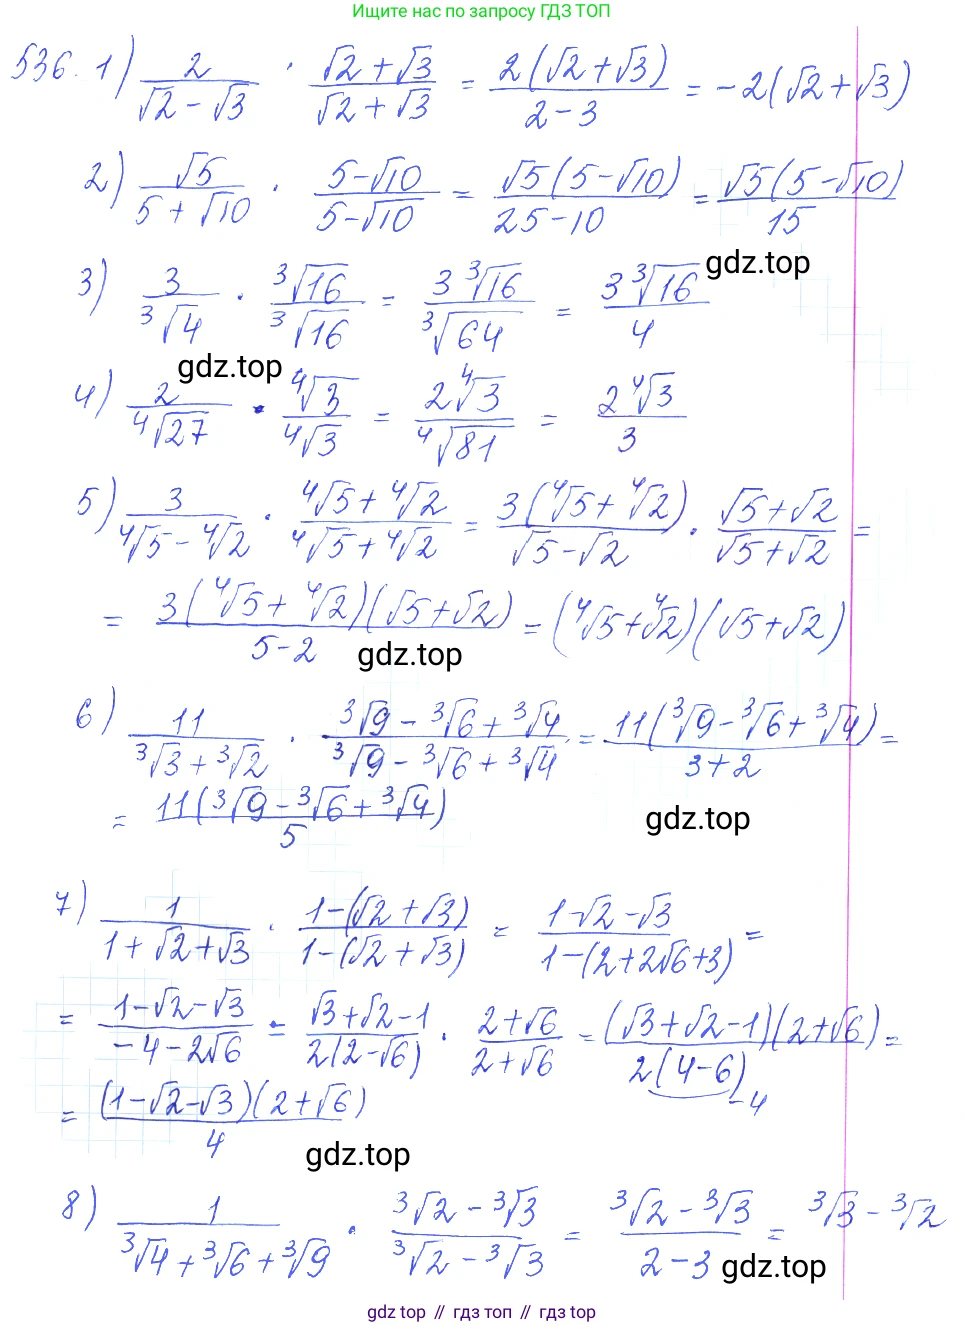 Ищите нас по запросу ГДЗ ТОП
536. 1) 2/(√2 − √3) · (√2 + √3)/(√2 + √3) = 2(√2 + √3)/(2 − 3) = −2(√2 + √3)
2) √5/(5 + √10) · (5 − √10)/(5 − √10) = √5(5 − √10)/(25 − 10) = √5(5 − √10)/15
gdz.top
3) 3/∛4 · ∛16/∛16 = 3∛16/∛64 = 3∛16/4
gdz.top
4) 2/∜27 · ∜3/∜3 = 2∜3/∜81 = 2∜3/3
5) 3/(∜5 − ∜2) · (∜5 + ∜2)/(∜5 + ∜2) = 3(∜5 + ∜2)/(√5 − √2) · (√5 + √2)/(√5 + √2) =
= 3(∜5 + ∜2)(√5 + √2)/(5 − 2) = (∜5 + ∜2)(√5 + √2)
gdz.top
6) 11/(∛3 + ∛2) · (∛9 − ∛6 + ∛4)/(∛9 − ∛6 + ∛4) = 11(∛9 − ∛6 + ∛4)/(3 + 2) =
= 11(∛9 − ∛6 + ∛4)/5
gdz.top
7) 1/(1 + √2 + √3) · (1 − (√2 + √3))/(1 − (√2 + √3)) = (1 − √2 − √3)/(1 − (2 + 2√6 + 3)) =
= (1 − √2 − √3)/(−4 − 2√6) = (√3 + √2 − 1)/(2(2 − √6)) · (2 + √6)/(2 + √6) = (√3 + √2 − 1)(2 + √6)/(2(4 − 6)) =
−4
= (1 − √2 − √3)(2 + √6)/4
gdz.top
8) 1/(∛4 + ∛6 + ∛9) · (∛2 − ∛3)/(∛2 − ∛3) = (∛2 − ∛3)/(2 − 3) = ∛3 − ∛2
gdz.top
gdz top // гдз топ // gdz top